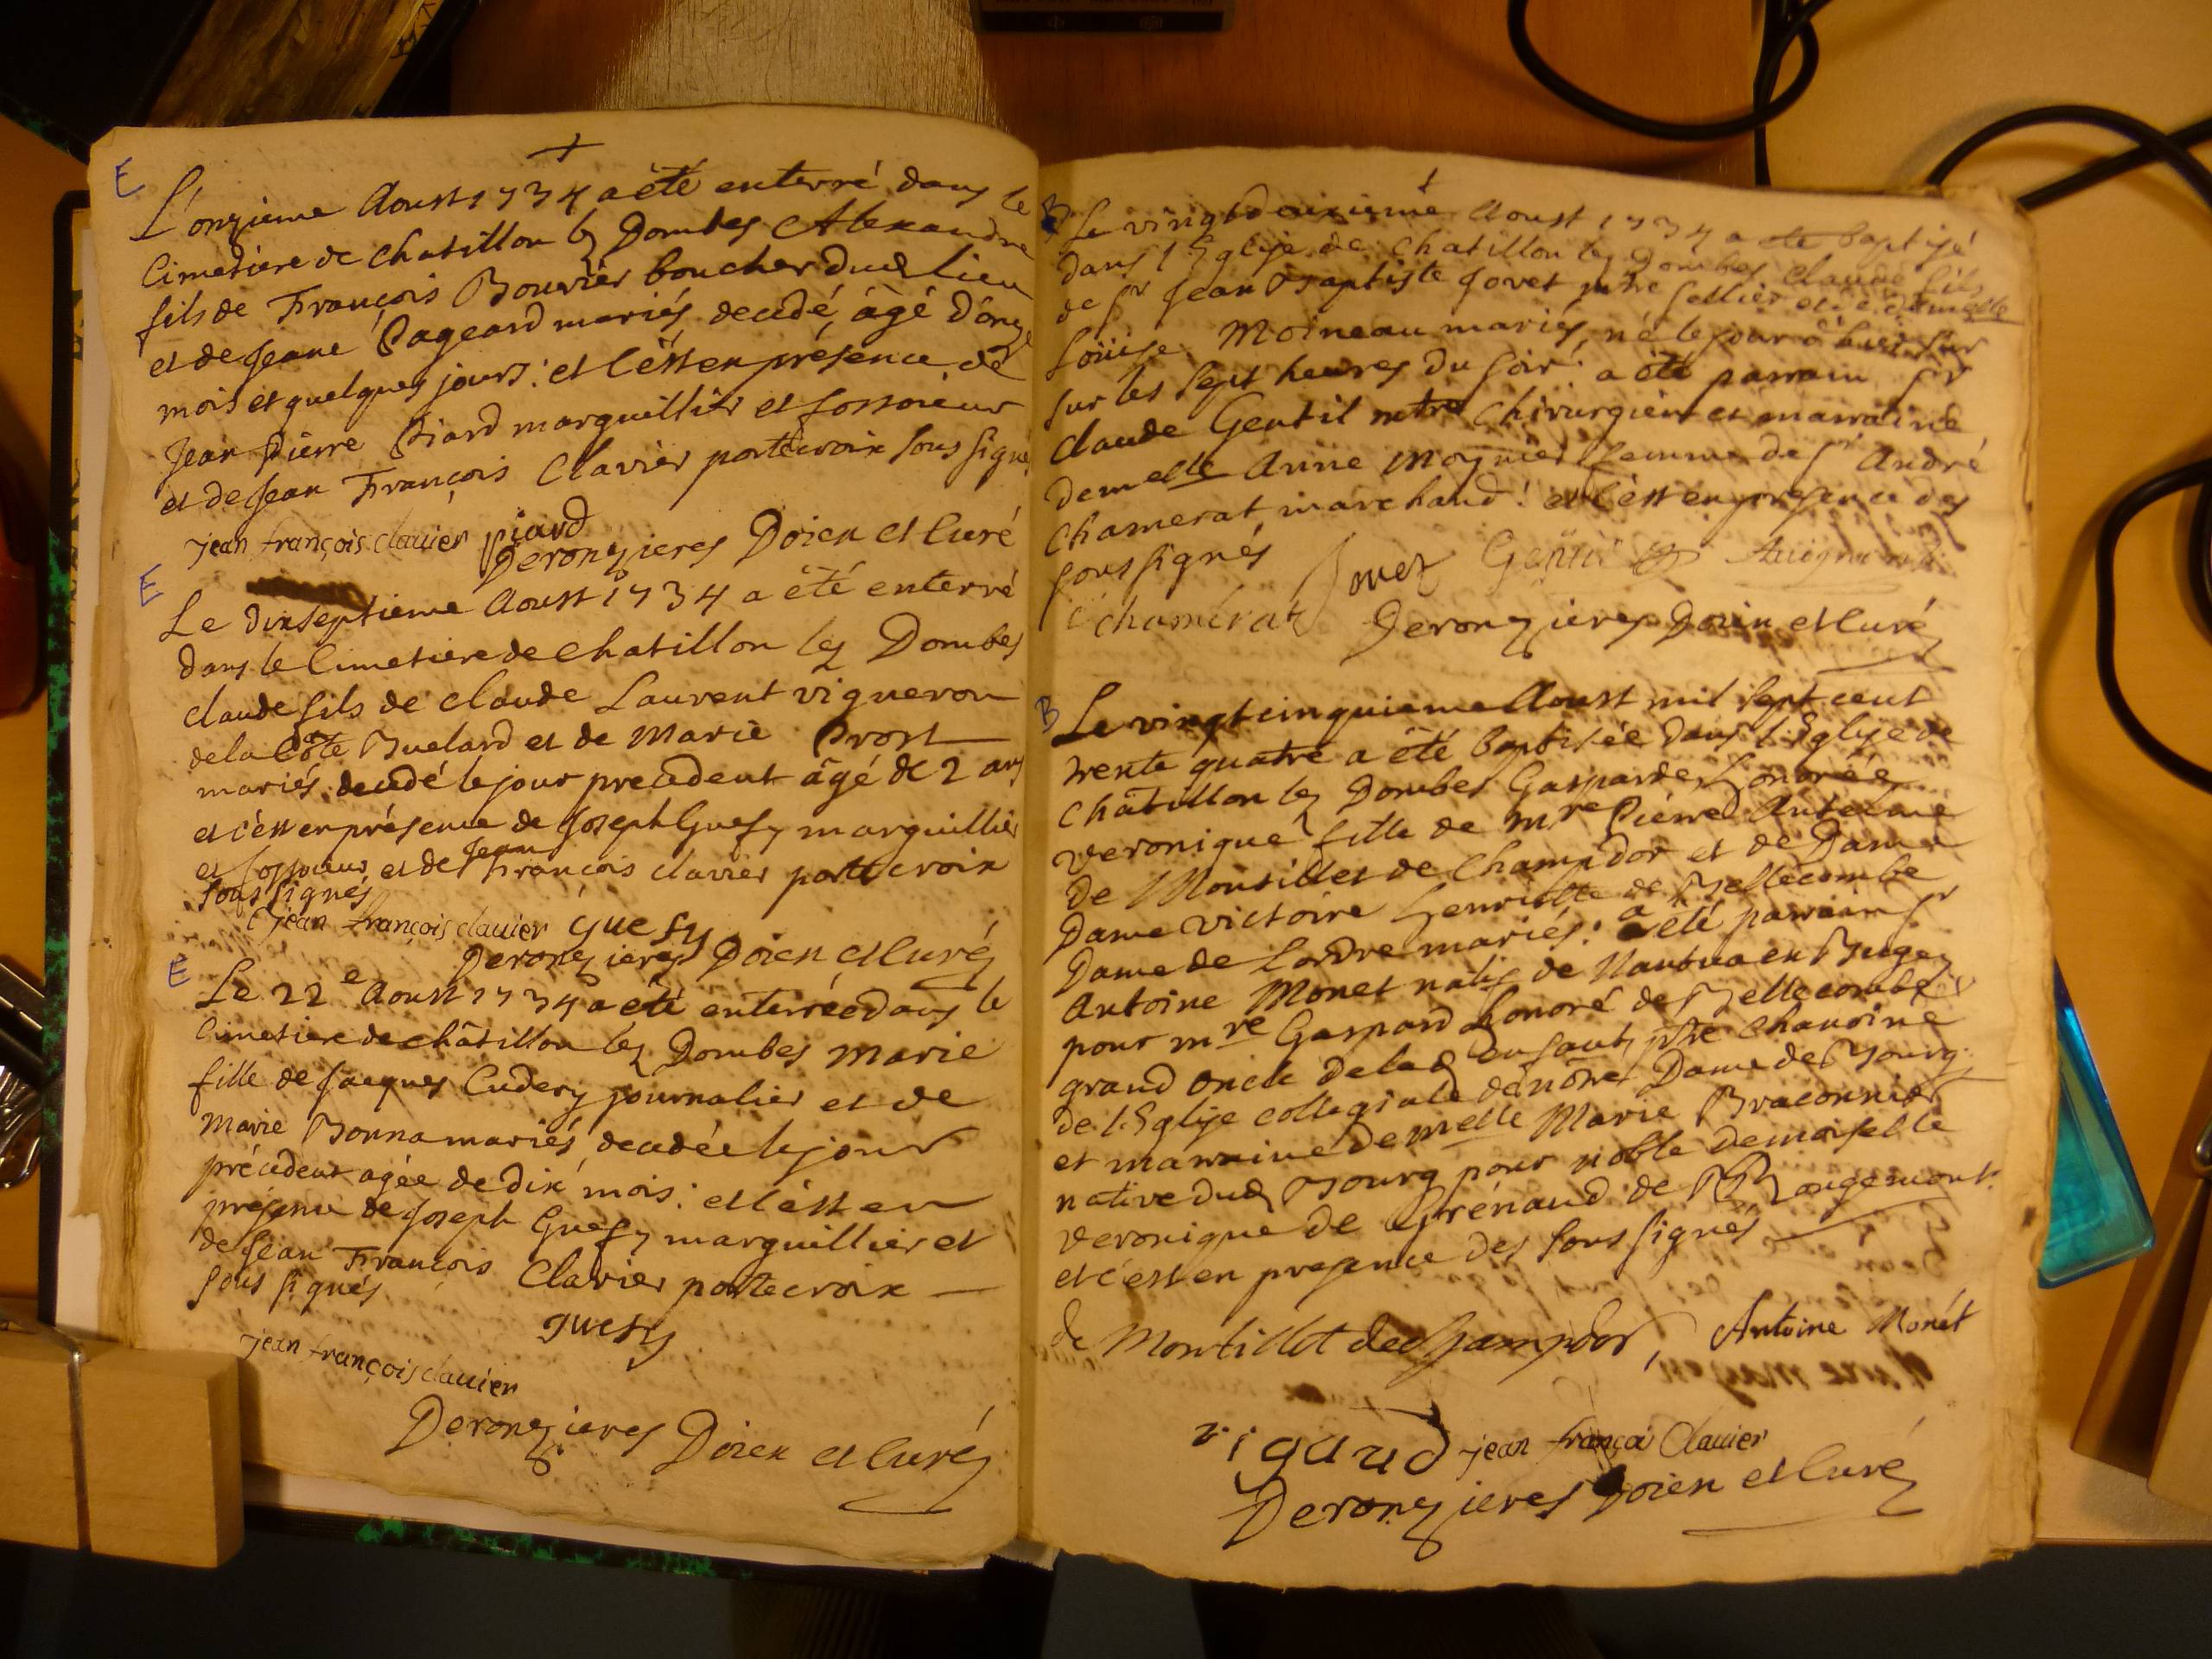 E
L'onzieme Aoust 1734 a été enterré dans le
Cimetiere de Chatillon lez Dombes Alexandre
fils de François Bouvier boucher dud lieu
et de Jeane Pageard mariés, decedé, âgé d'onze
mois et quelques jours: et c'est en présence de
Jean Pierre Piard marguillier et fossoieur
et de Jean François Clavier portecroix sous signé
jean françois clauier piard
Deronzieres Doien et Curé
E
Le dixseptieme Aoust 1734 a été enterré
dans le Cimetiere de Chatillon lez Dombes
claude fils de claude Laurent vigneron
de la Côte Buelard et de Marie Prost
mariés, decedé le jour precedent âgé de 2 ans
et c'est en présence de Joseph Guesy marguillier
et fossoieur et de Jean François clavier porte croix
sous signés
jean françois clauier guesy
Deronzieres Doien et Curé
E
Le 22e Aoust 1734 a été enterrée dans le
Cimetiere de Châtillon lez Dombes Marie
fille de Jacques Cudery journalier et de
Marie Bonna mariés, decedée le jour
précedent agée de dix mois: et c'est en
présence de Joseph Guesy marguillier et
de Jean François Clavier porte croix
sous signés
guesy
jean françois clauier
Deronzieres Doien et Curé
B
Le vingtdeuxieme Aoust 1734 a été baptisé
dans l'Eglise de Chatillon lez Dombes Claude fils
de sr Jean Baptiste Jovet mtre sellier et de demelle
Loüise Moineau mariés, né le jour d'hier
sur les sept heures du soir: a été parrain sr
claude Gentil mtre Chirurgien et marraine
demelle Anne Mognier femme de sr André
Chamerat marchand: et c'est en presence des
sous signés
Jovet Gentil
chamérat Deronzieres Doien et Curé
B
Le vingtcinquieme Aoust mil sept cent
trente quatre a été baptisée dans l'Eglise de
Châtillon lez Dombes Gasparde Honorée
Veronique fille de mre Pierre Antelme
de Montillet de Champdor et de Dame
Dame Victoire Henriette de Bellecombe
Dame de mariés: a été parrain sr
Antoine Monet natif de Nantua en Bugey
pour mre Gaspard Honoré de Bellecombe
grand oncle de lad enfant, ptre Chanoine
de l'Eglise collegiale de nôtre Dame de Bourg
et marraine demelle Marie Braconnier
native dud Bourg pour noble demoiselle
Veronique de Grénaud de Rougemont
et c'est en presence des sous signés
de Montillet de Champdor, Antoine Monét
rigaud jean françoi Clauier
Deronzieres Doien et Curé